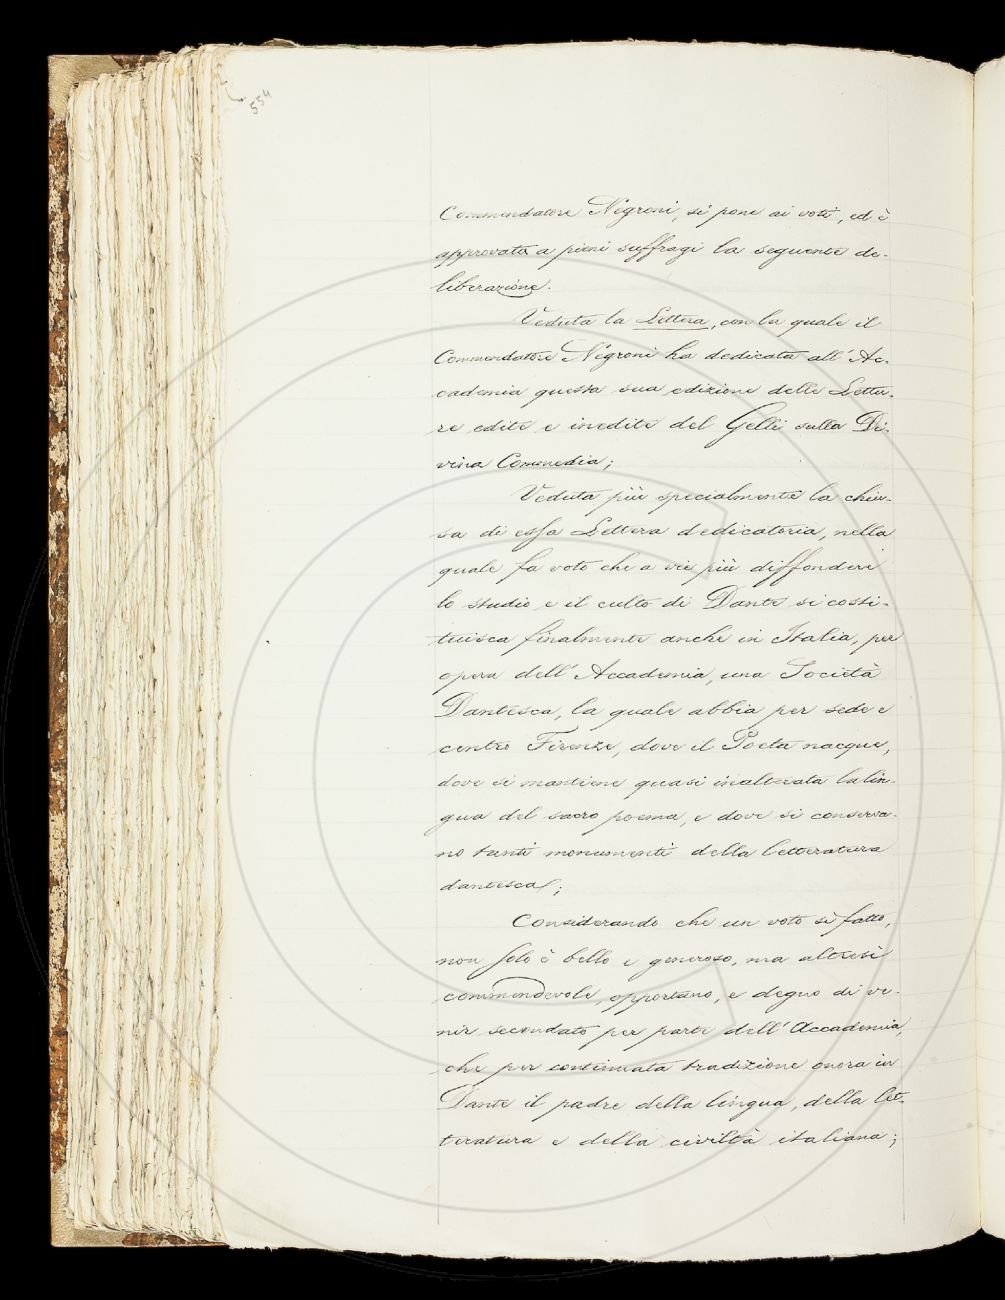 554
Commendatore Negroni, si pone ai voti, ed è
approvata a pieni suffragi la seguente de-
liberazione.
Veduta la Lettera, con la quale il
Commendatore Negroni ha dedicata all'Ac-
cademia questa sua edizione delle Lettu-
re edite e inedite del Gelli sulla Di-
vina Commedia;
Veduta più specialmente la chiu-
sa di essa Lettera dedicatoria, nella
quale fa voto che a vie più diffondere
lo studio e il culto di Dante si costi-
tuisca finalmente anche in Italia, per
opera dell'Accademia, una Società
Dantesca, la quale abbia per sede e
centro Firenze, dove il Poeta nacque,
dove si mantiene quasi inalterata la lin-
gua del sacro poema, e dove si conserva-
no tanti monumenti della letteratura
dantesca;
Considerando che un voto sì fatto,
non solo è bello e generoso, ma altresì
commendevole, opportuno, e degno di ve-
nir secondato per parte dell'Accademia,
che per continuata tradizione onora in
Dante il padre della lingua, della let-
teratura e della civiltà italiana;